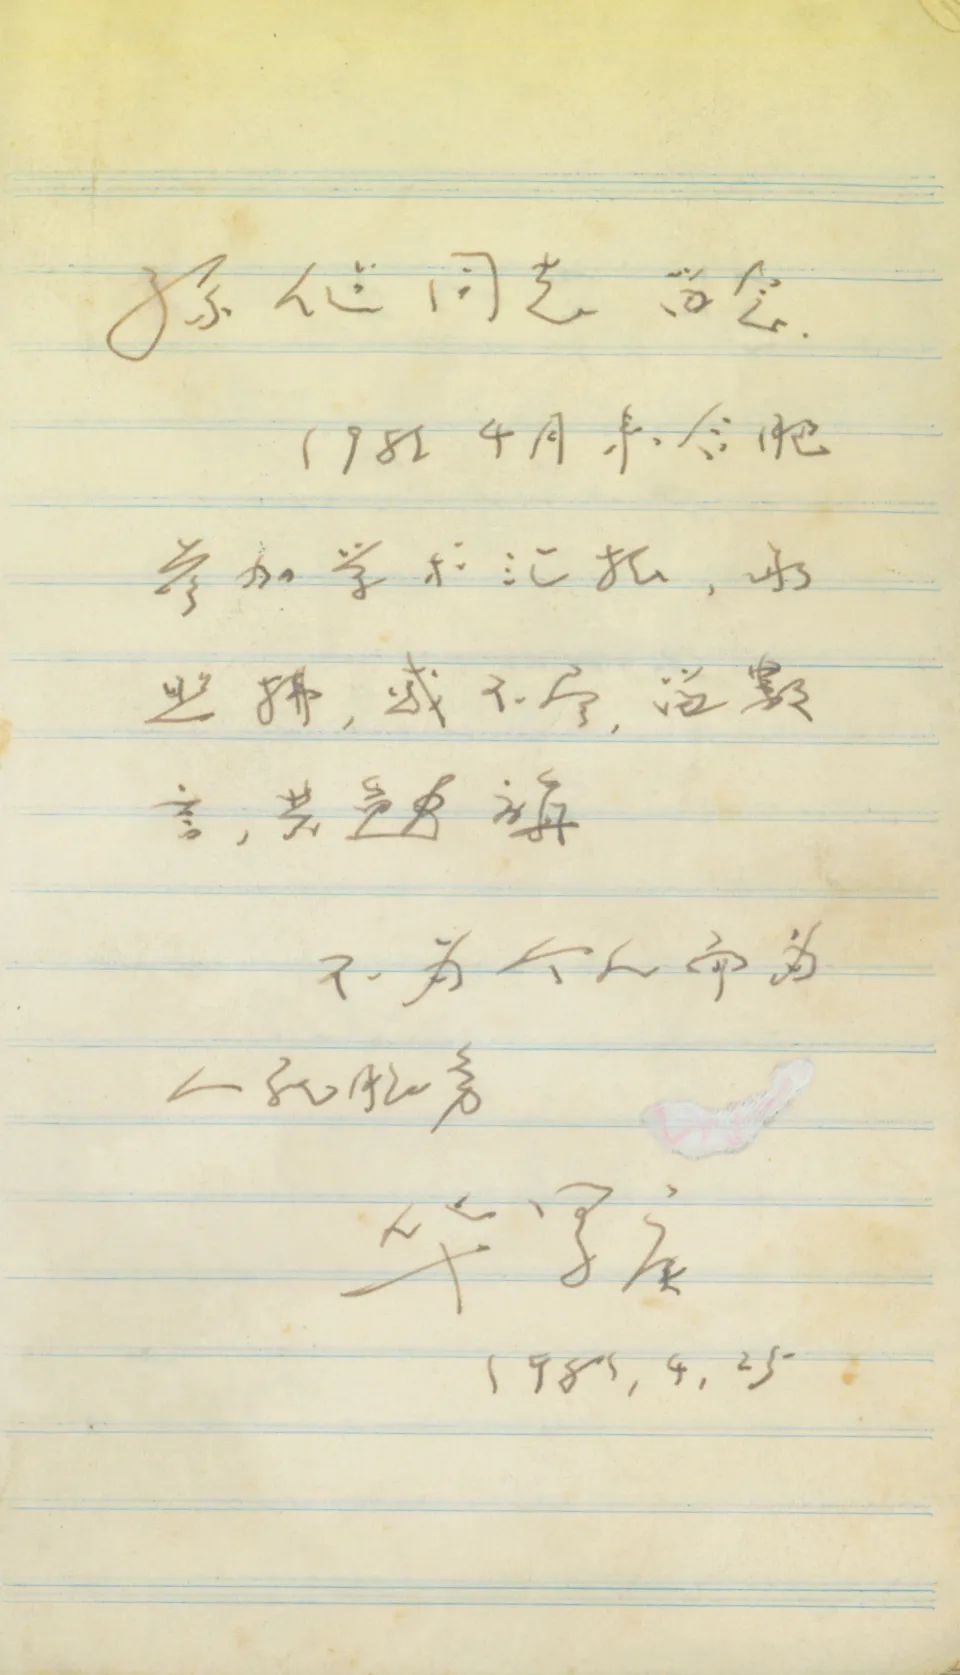 孙仁同志留念.
1985 4月来合肥
参加学术汇报,承
照拂,感不尽,写数
言,共勉旃
不为个人而为
人民服务
华罗庚
1985,4,25